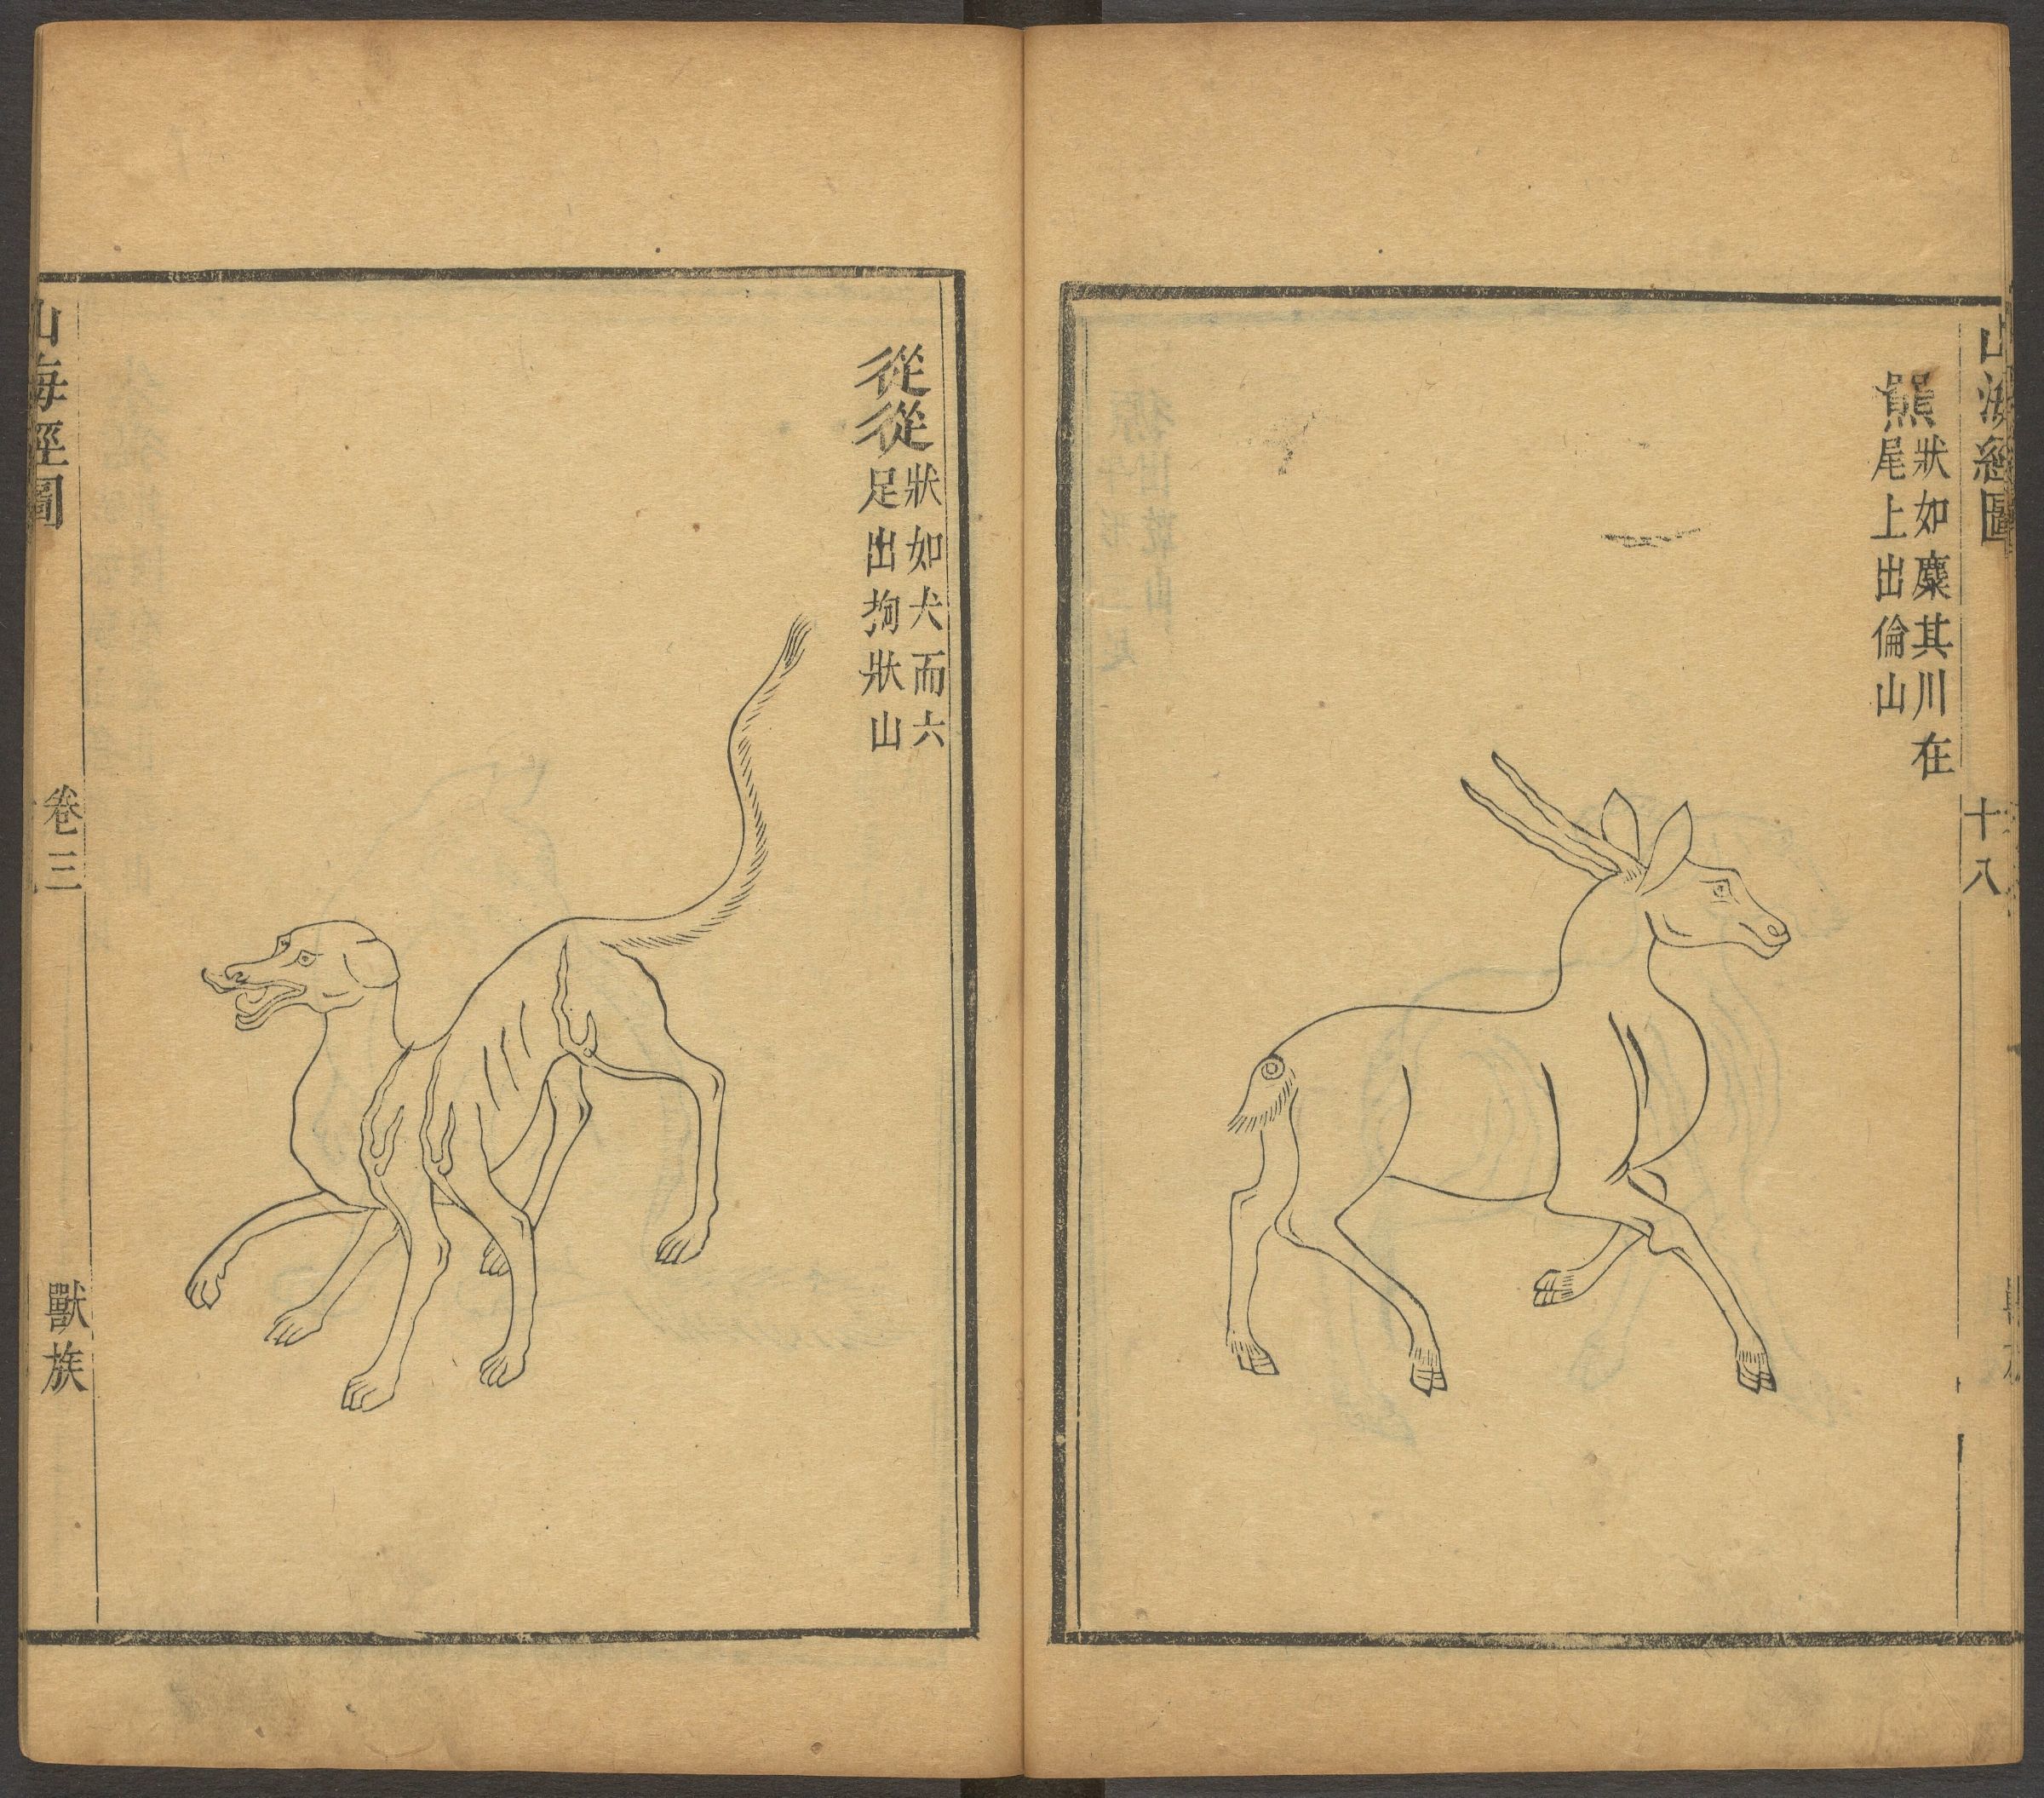 山海經圖
十八
羆
狀如麋其川在
尾上出倫山
從從
狀如犬而六
足出拘狀山
山海經圖
卷三
獸族